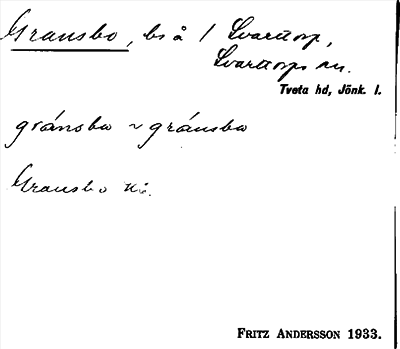 Gransbo, bs å 1 Svarttorp,
Svarttorps sn.
Tveta hd, Jönk. l.
gránsba ~ gránsba
Gransbo
FRITZ ANDERSSON 1933.